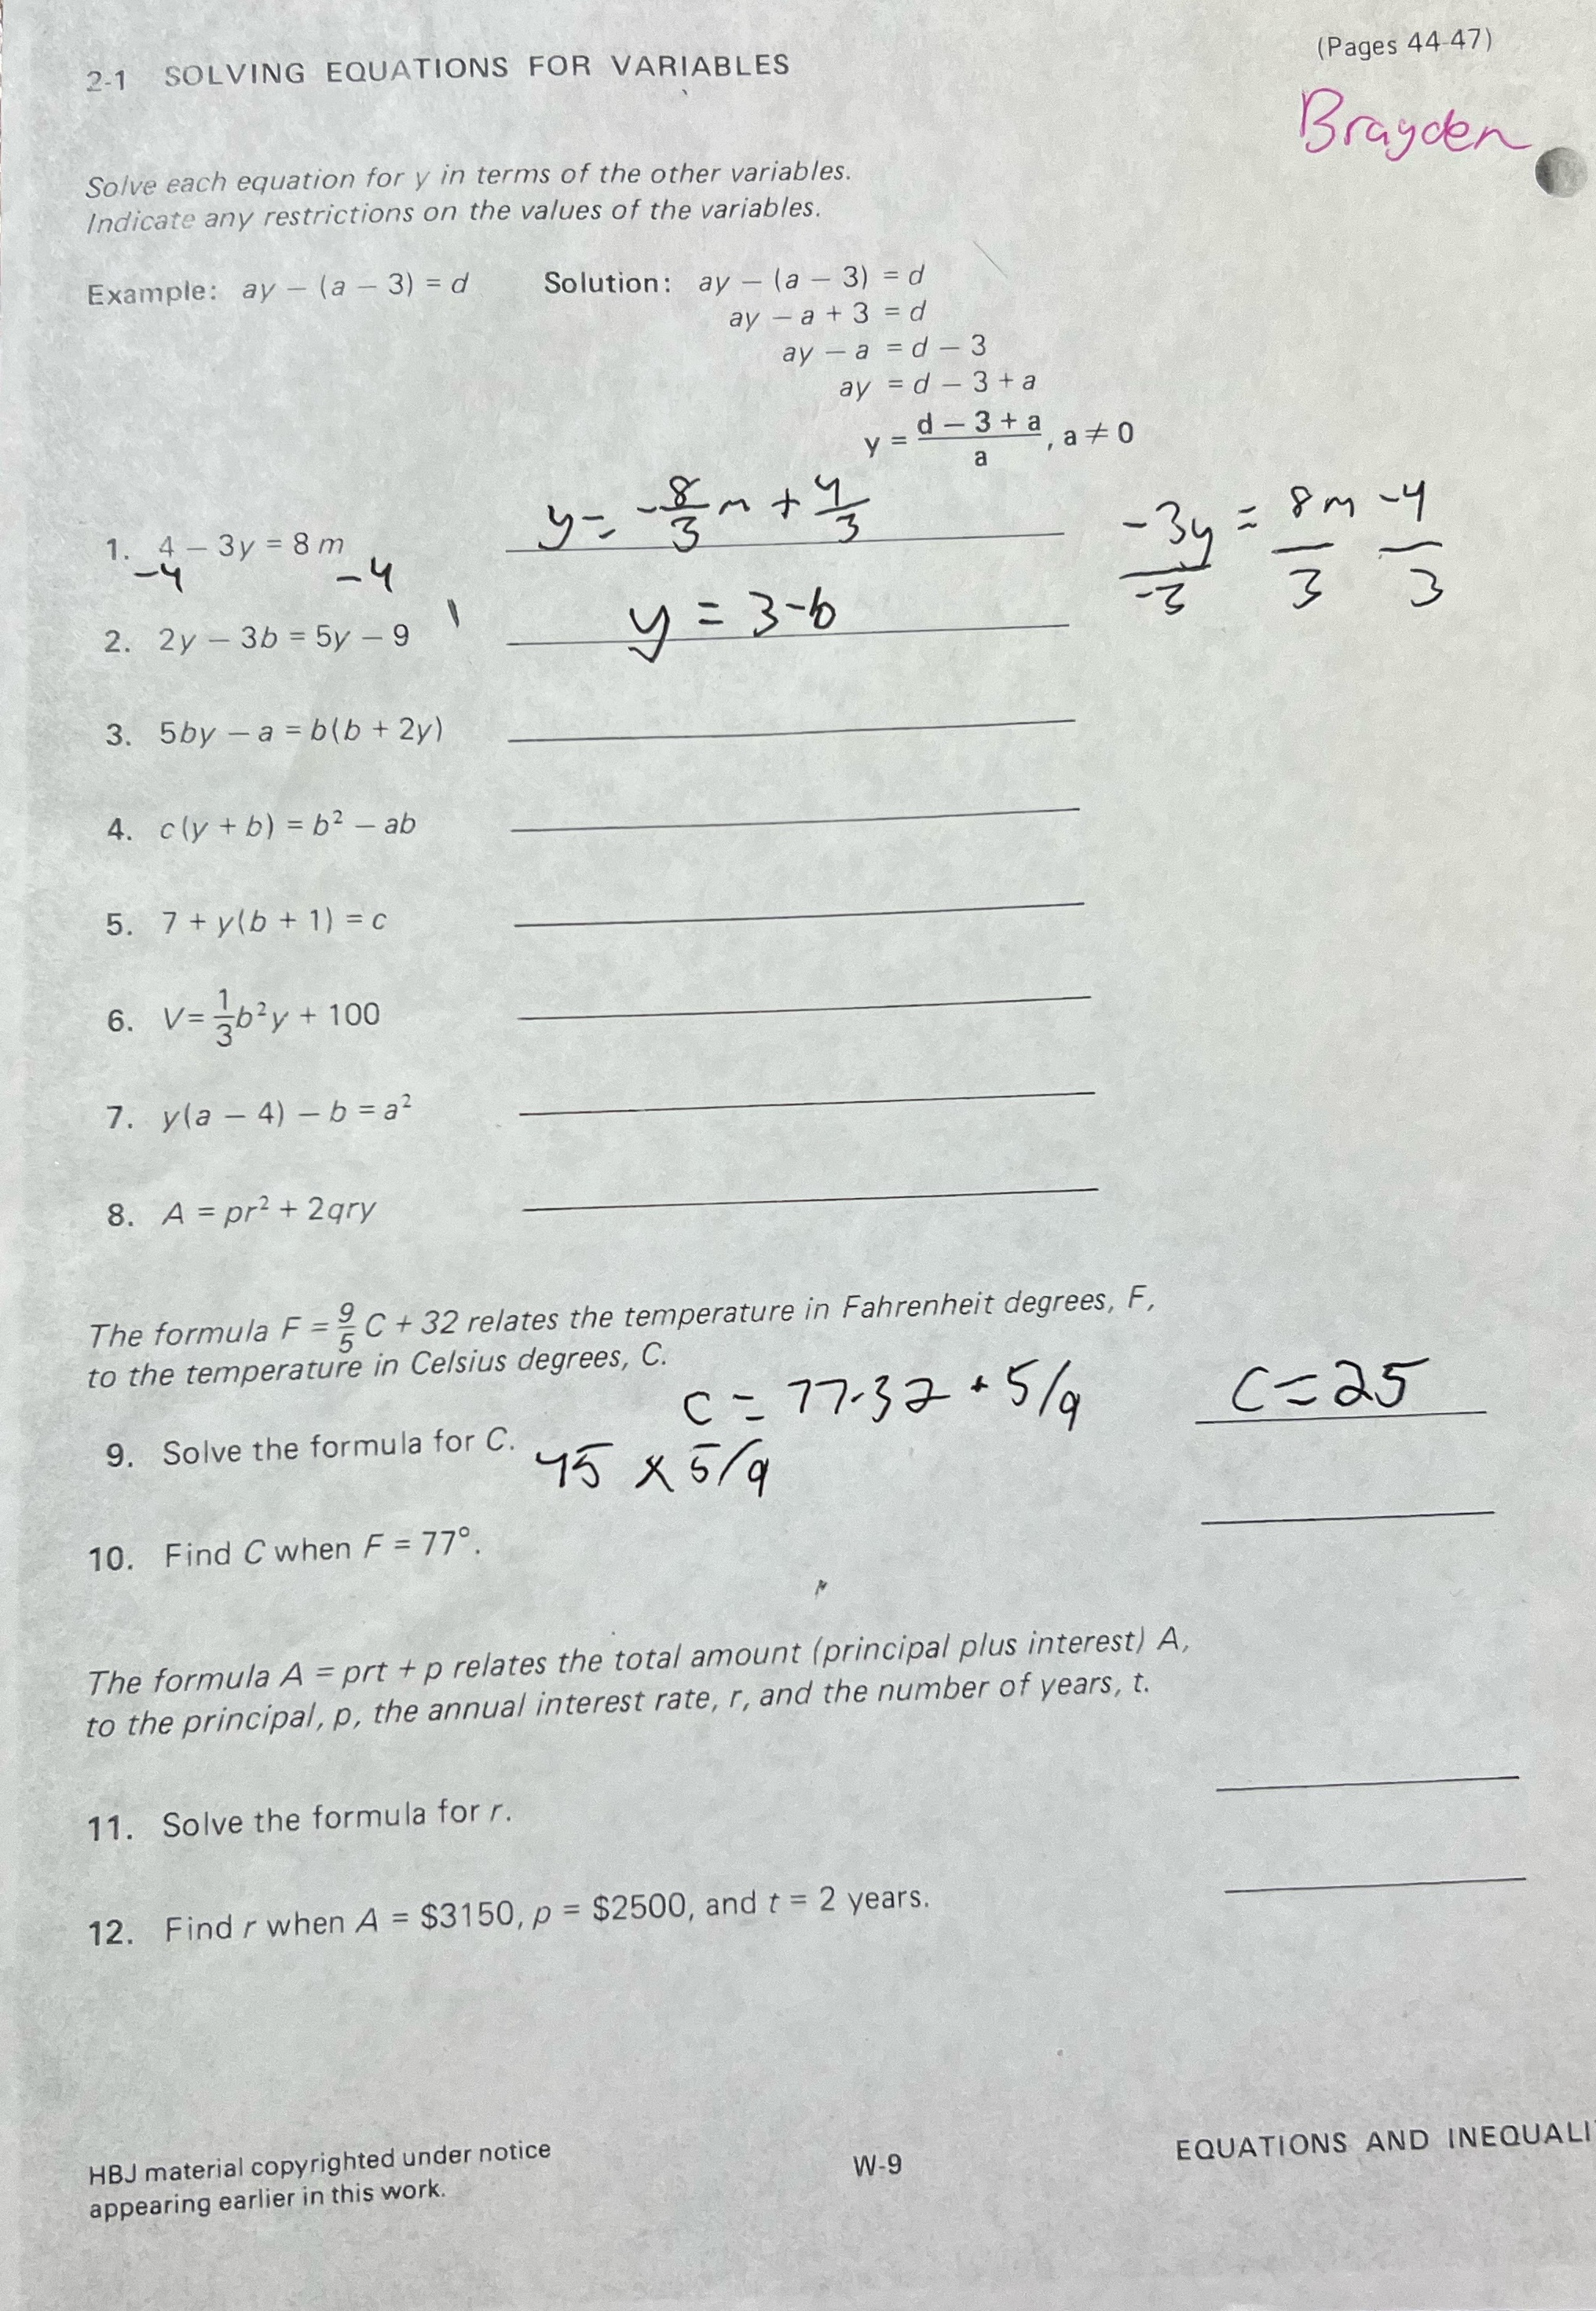 (Pages 44-47)
2-1 SOLVING EQUATIONS FOR VARIABLES
Brayden
Solve each equation for y in terms of the other variables.
Indicate any restrictions on the values of the variables.
Example: ay − (a − 3) = d Solution: ay − (a − 3) = d
ay − a + 3 = d
ay − a = d − 3
ay = d − 3 + a
y = (d − 3 + a)/a, a ≠ 0
1. 4 − 3y = 8m y = -8/3 m + 4/3 -3y = 8m -4
-4 -4 -3 3 3
2. 2y − 3b = 5y − 9 y = 3-b
3. 5by − a = b(b + 2y)
4. c(y + b) = b² − ab
5. 7 + y(b + 1) = c
6. V = 1/3 b²y + 100
7. y(a − 4) − b = a²
8. A = pr² + 2qry
The formula F = 9/5 C + 32 relates the temperature in Fahrenheit degrees, F,
to the temperature in Celsius degrees, C.
C = 77-32 • 5/9 C = 25
9. Solve the formula for C. 45 x 5/9
10. Find C when F = 77°.
The formula A = prt + p relates the total amount (principal plus interest) A,
to the principal, p, the annual interest rate, r, and the number of years, t.
11. Solve the formula for r.
12. Find r when A = $3150, p = $2500, and t = 2 years.
HBJ material copyrighted under notice
appearing earlier in this work.
W-9
EQUATIONS AND INEQUALI